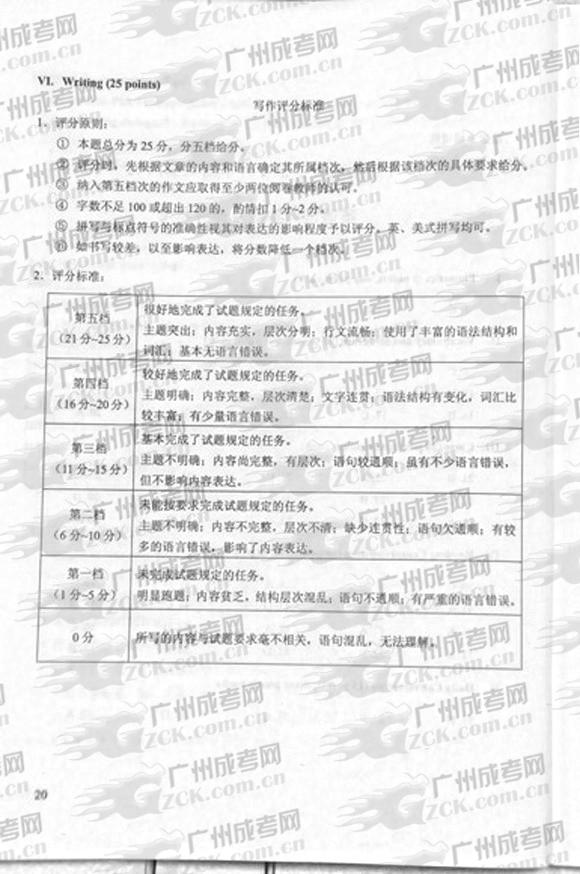 VI. Writing (25 points)
写作评分标准
1. 评分原则：
① 本题总分为 25 分，分五档给分。
② 评分时，先根据文章的内容和语言确定其所属档次，然后根据该档次的具体要求给分。
③ 纳入第五档次的作文应取得至少两位阅卷教师的认可。
④ 字数不足 100 或超出 120 的，酌情扣 1 分~2 分。
⑤ 拼写与标点符号的准确性视其对表达的影响程度予以评分。英、美式拼写均可。
⑥ 如书写较差，以至影响表达，将分数降低一个档次。
2. 评分标准：
第五档
（21 分~25 分）
很好地完成了试题规定的任务。
主题突出；内容充实，层次分明；行文流畅；使用了丰富的语法结构和
词汇；基本无语言错误。
第四档
（16 分~20 分）
较好地完成了试题规定的任务。
主题明确；内容完整，层次清楚；文字连贯；语法结构有变化，词汇比
较丰富；有少量语言错误。
第三档
（11 分~15 分）
基本完成了试题规定的任务。
主题不明确；内容尚完整，有层次；语句较通顺；虽有不少语言错误，
但不影响内容表达。
第二档
（6 分~10 分）
未能按要求完成试题规定的任务。
主题不明确；内容不完整，层次不清；缺少连贯性；语句欠通顺；有较
多的语言错误，影响了内容表达。
第一档
（1 分~5 分）
未完成试题规定的任务。
明显跑题；内容贫乏，结构层次混乱；语句不通顺；有严重的语言错误。
0 分
所写的内容与试题要求毫不相关，语句混乱，无法理解。
20
广州成考网
GZCK.com.cn